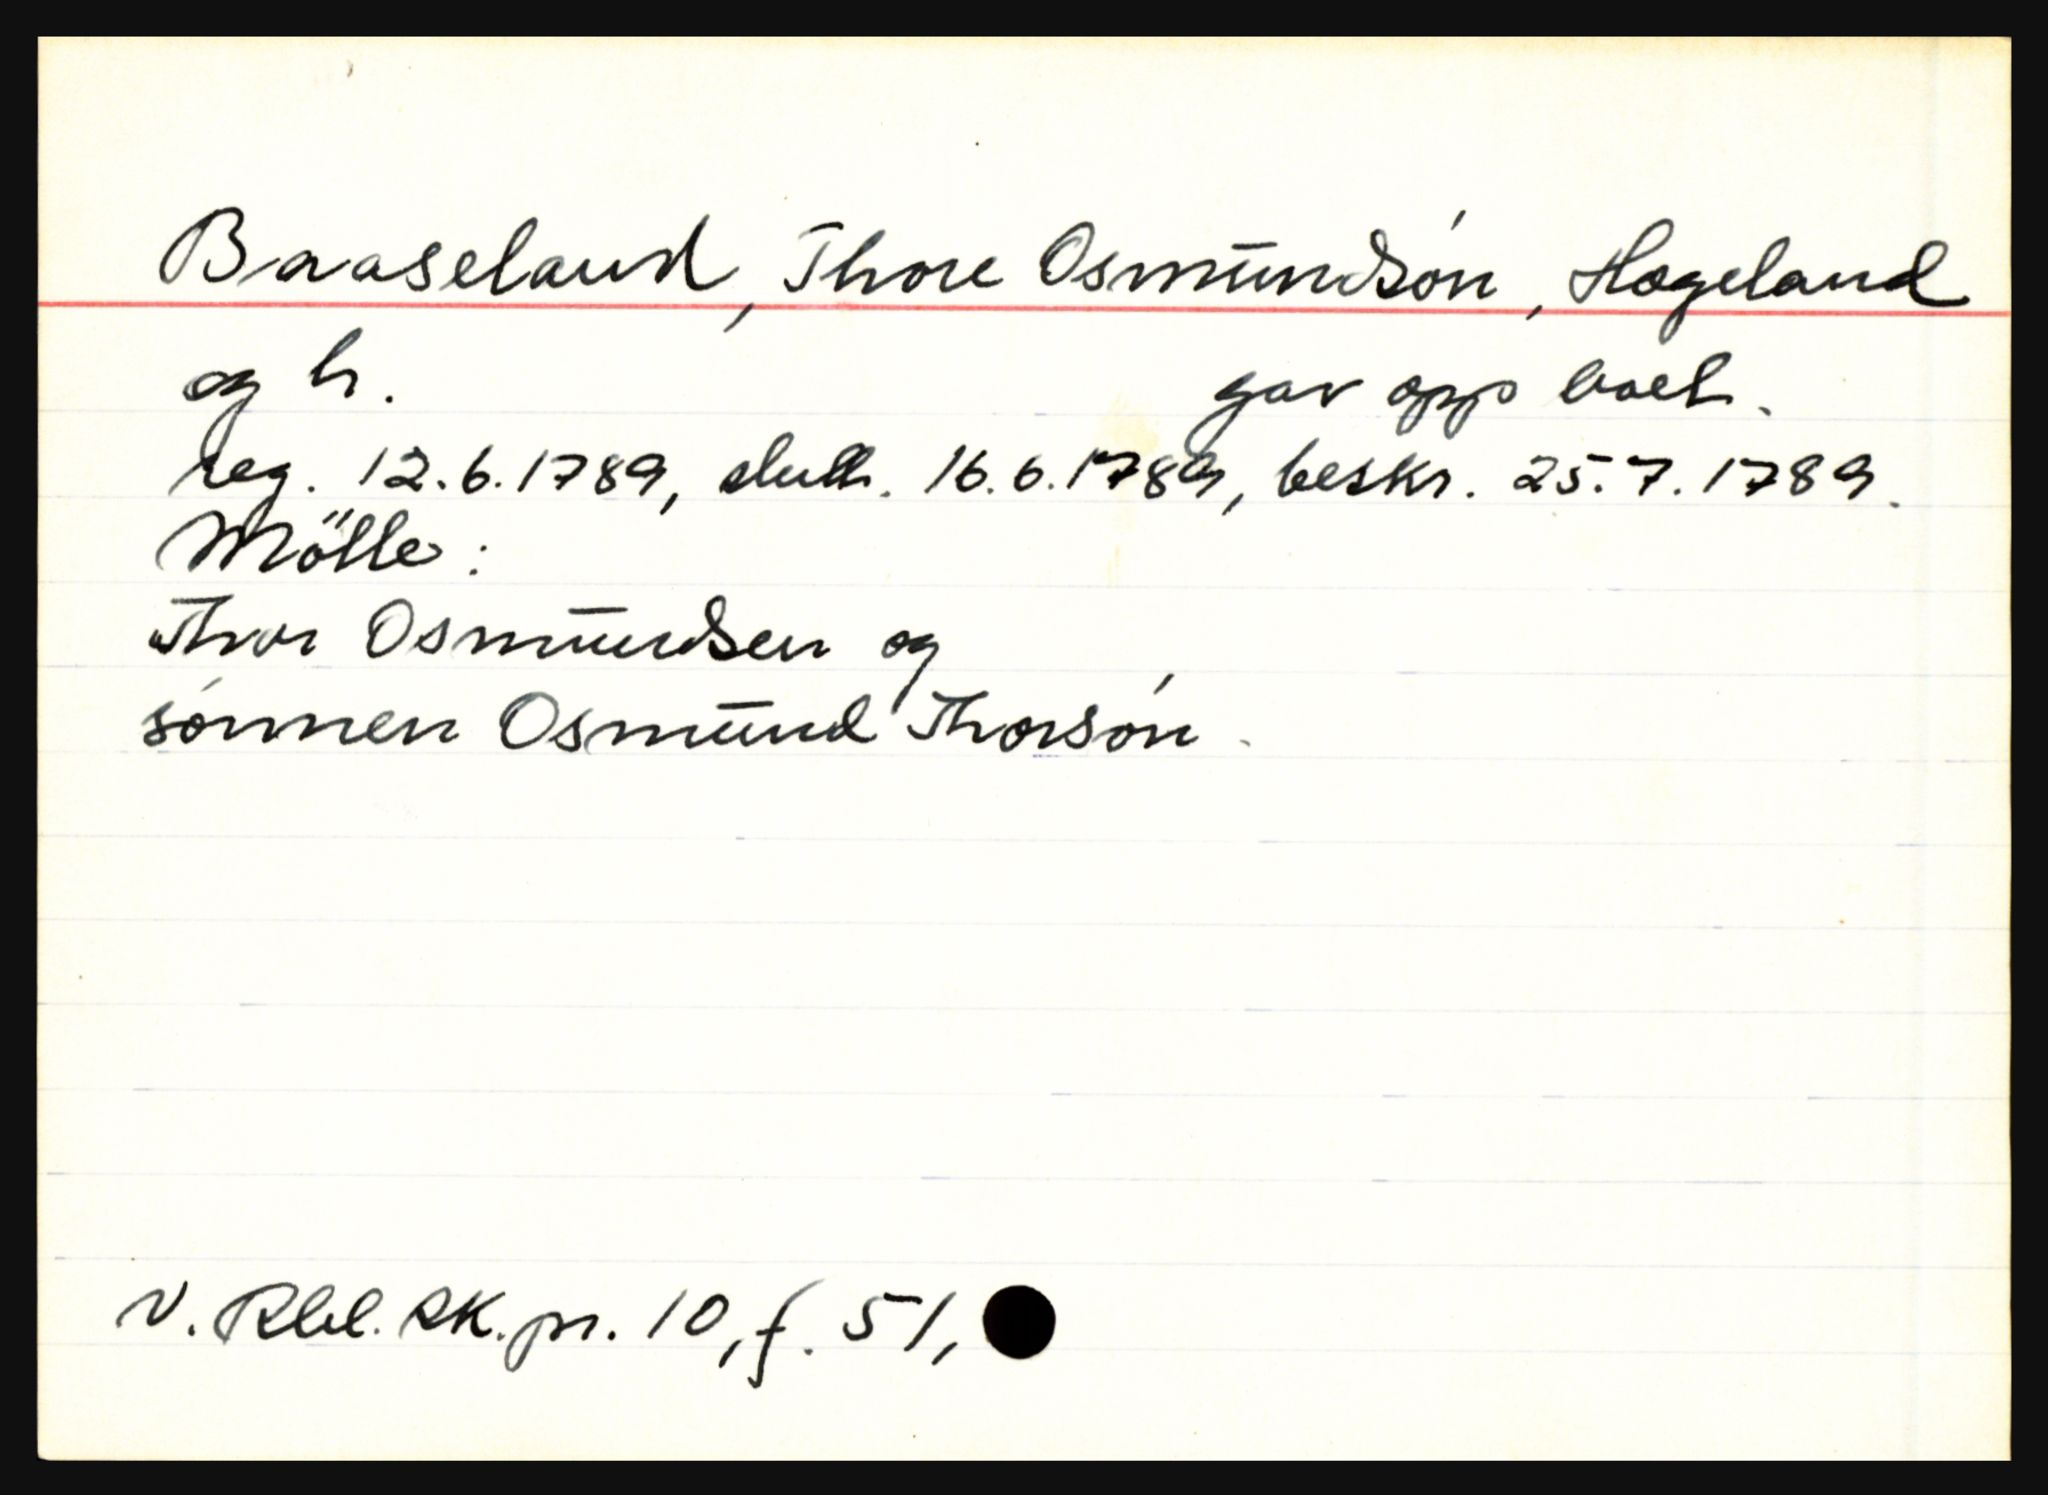 Baaseland, Thore Osmundsón, Hægeland
og h. gav opp boet.
reg. 12.6.1789, slutt. 16.6.1789, beskr. 25.7.1789.
Mötte:
Thor Osmundsen og
sónnen Osmund Thorsón.
V. Rbd. SK. pr. 10, f. 51,